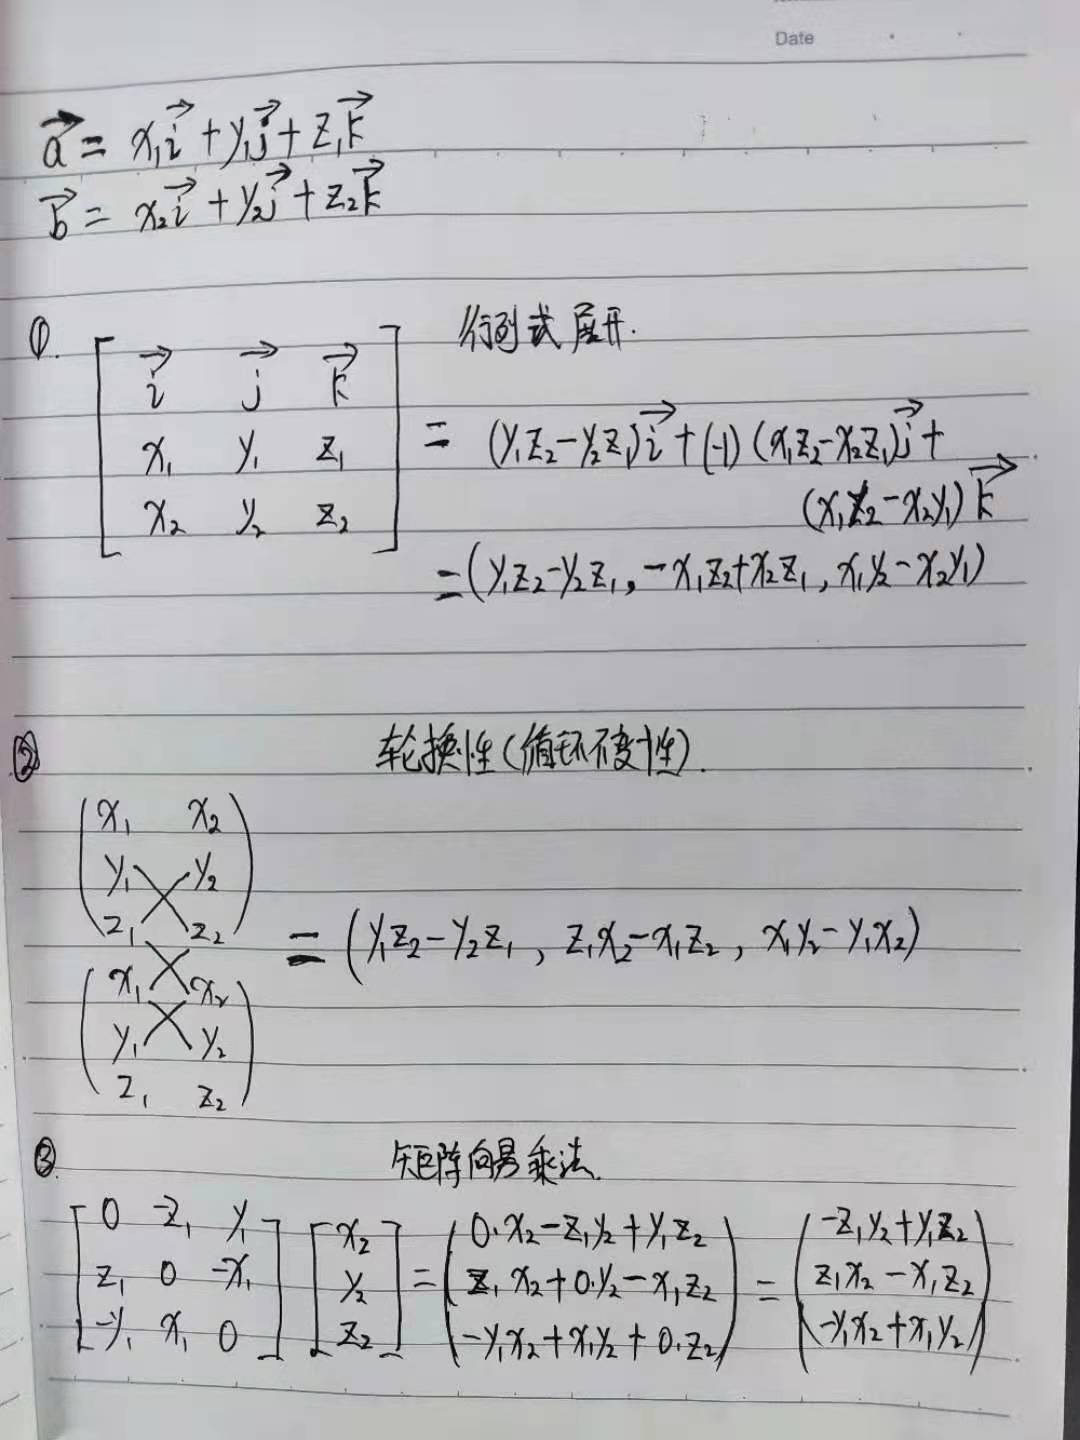 Date
a⃗ = x₁i⃗ + y₁j⃗ + z₁k⃗
b⃗ = x₂i⃗ + y₂j⃗ + z₂k⃗
①. 行列式展开.
[ i⃗ j⃗ k⃗
x₁ y₁ z₁
x₂ y₂ z₂ ]
= (y₁z₂-y₂z₁)i⃗ + (-1)(x₁z₂-x₂z₁)j⃗ +
(x₁y₂-x₂y₁)k⃗
= (y₁z₂-y₂z₁, -x₁z₂+x₂z₁, x₁y₂-x₂y₁)
② 轮换性(循环不变性).
( x₁ x₂
y₁ y₂
z₁ z₂ )
( x₁ x₂
y₁ y₂
z₁ z₂ )
= (y₁z₂-y₂z₁, z₁x₂-x₁z₂, x₁y₂-y₁x₂)
③. 矩阵向量乘法.
[ 0 -z₁ y₁ ] [ x₂ ] = ( 0·x₂-z₁y₂+y₁z₂ ) = ( -z₁y₂+y₁z₂ )
[ z₁ 0 -x₁ ] [ y₂ ] ( z₁x₂+0·y₂-x₁z₂ ) ( z₁x₂-x₁z₂ )
[ -y₁ x₁ 0 ] [ z₂ ] ( -y₁x₂+x₁y₂+0·z₂ ) ( -y₁x₂+x₁y₂ )